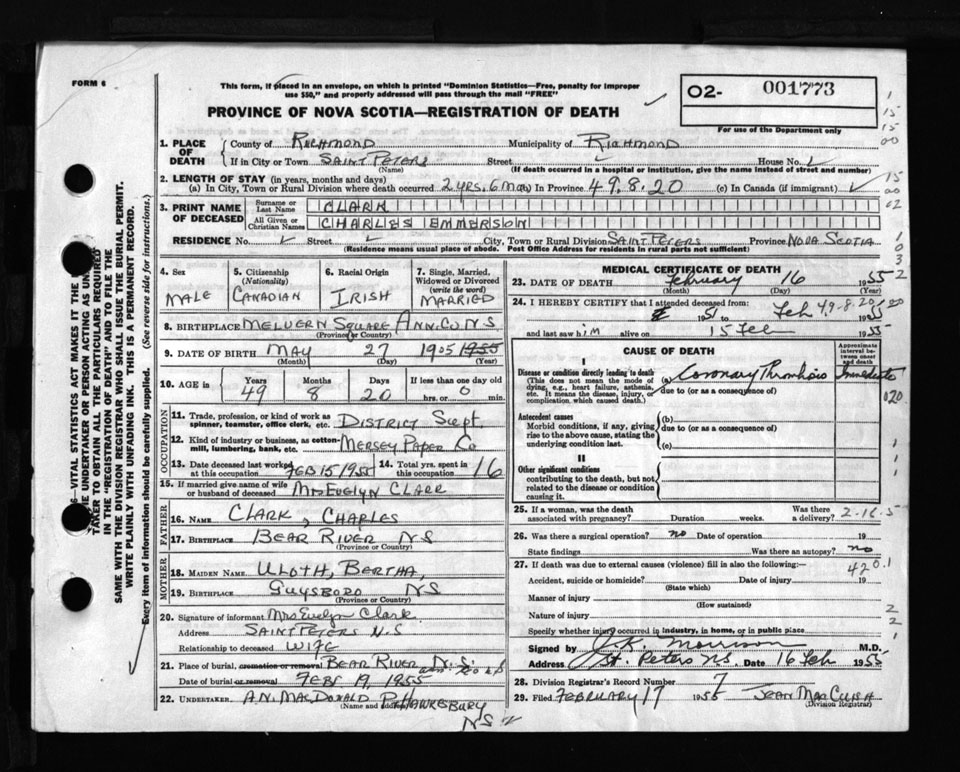 FORM 6
This form, if placed in an envelope, on which is printed "Dominion Statistics—Free, penalty for improper
use $50," and properly addressed will pass through the mail "FREE"
PROVINCE OF NOVA SCOTIA—REGISTRATION OF DEATH
02- 001773
For use of the Department only
1. PLACE OF DEATH
County of RICHMOND Municipality of RICHMOND
If in City or Town SAINT PETERS Street House No.
(Name) (If death occurred in a hospital or institution, give the name instead of street and number)
2. LENGTH OF STAY (in years, months and days)
(a) In City, Town or Rural Division where death occurred 2 yrs. 6 mo (b) In Province 49. 8. 20 (c) In Canada (if immigrant)
3. PRINT NAME OF DECEASED
Surname or Last Name CLARK
All Given or Christian Names CHARLES EMMERSON
RESIDENCE No. Street City, Town or Rural Division SAINT PETERS Province NOVA SCOTIA
(Residence means usual place of abode. Post Office Address for residents in rural parts not sufficient)
4. Sex MALE
5. Citizenship (Nationality) CANADIAN
6. Racial Origin IRISH
7. Single, Married, Widowed or Divorced (write the word) MARRIED
8. BIRTHPLACE MELVERN SQUARE ANN. CO. N.S
(Province or Country)
9. DATE OF BIRTH MAY 27 1905 1955
(Month) (Day) (Year)
10. AGE IN Years 49 Months 8 Days 20 If less than one day old 0 hrs. or min.
OCCUPATION
11. Trade, profession, or kind of work as spinner, teamster, office clerk, etc. DISTRICT Supt.
12. Kind of industry or business, as cotton-mill, lumbering, bank, etc. MERSEY PAPER Co
13. Date deceased last worked at this occupation FEB 15 1955 14. Total yrs. spent in this occupation 16
15. If married give name of wife or husband of deceased MRS EVELYN CLARK
FATHER
16. NAME CLARK, CHARLES
17. BIRTHPLACE BEAR RIVER N.S
(Province or Country)
MOTHER
18. MAIDEN NAME ULOTH, BERTHA,
19. BIRTHPLACE GUYSBORO N.S
(Province or Country)
20. Signature of informant Mrs Evelyn Clark
Address SAINT PETERS N.S
Relationship to deceased WIFE
21. Place of burial, cremation or removal BEAR RIVER N.S.
Date of burial or removal FEB 19 1955
22. UNDERTAKER A.N. MACDONALD P. HAWKESBURY
(Name and address) N.S
MEDICAL CERTIFICATE OF DEATH
23. DATE OF DEATH February 16 1955
(Month) (Day)
24. I HEREBY CERTIFY that I attended deceased from:
1951 to Feb 1955
49-8-20
and last saw him alive on 15 Feb 1955
CAUSE OF DEATH
Approximate interval between onset and death
I
Disease or condition directly leading to death (a) Coronary Thrombosis Immediate
(This does not mean the mode of dying, e.g., heart failure, asthenia, etc. It means the disease, injury, or complication which caused death.)
due to (or as a consequence of)
Antecedent causes (b)
Morbid conditions, if any, giving rise to the above cause, stating the underlying condition last.
due to (or as a consequence of)
(c)
II
Other significant conditions contributing to the death, but not related to the disease or condition causing it.
25. If a woman, was the death associated with pregnancy? Duration weeks. Was there a delivery? 2-16-5
26. Was there a surgical operation? no Date of operation 19
State findings Was there an autopsy? no
27. If death was due to external causes (violence) fill in also the following:— 420.1
Accident, suicide or homicide? Date of injury 19
(State which)
Manner of injury
(How sustained)
Nature of injury
Specify whether injury occurred in industry, in home, or in public place
Signed by J.K. Morrison M.D.
Address St. Peters N.S. Date 16 Feb 1955
28. Division Registrar's Record Number 7
29. Filed FEBRUARY 17 1955 JEAN MACCUISH
(Division Registrar)
SAME WITH THE DIVISION REGISTRAR WHO SHALL ISSUE THE BURIAL PERMIT.
WRITE PLAINLY WITH UNFADING INK. THIS IS A PERMANENT RECORD.
Every item of information should be carefully supplied. (See reverse side for instructions.)
IN THE "REGISTRATION OF DEATH" AND TO FILE THE
TAKER TO OBTAIN ALL THE PARTICULARS REQUIRED
UNDERTAKER OR PERSON ACTING AS
VITAL STATISTICS ACT MAKES IT THE